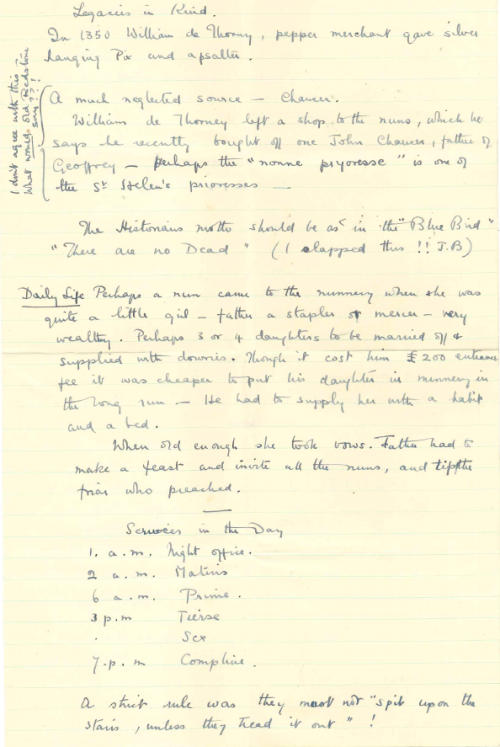 Legacies in Kind.
In 1350 William de Thorny, pepper merchant gave silver
hanging Pix and a psalter.
I don't agree with this –
What would old Redstone
say??!
A much neglected source – Chaucer.
William de Thorney left a shop to the nuns, which he
says he recently bought off one John Chaucer, father of
Geoffrey – perhaps the "nonne pryoresse" is one of
the St Helen's prioresses –
The Historians motto should be as in the "Blue Bird"
"There are no Dead" (I clapped this !! J.B)
Daily Life Perhaps a nun came to the nunnery when she was
quite a little girl – father a stapler or mercer – very
wealthy. Perhaps 3 or 4 daughters to be married off &
supplied with dowries. Though it cost him £200 entrance
fee it was cheaper to put his daughter in nunnery in
the long run – He had to supply her with a habit
and a bed.
When old enough she took vows. Father had to
make a feast and invite all the nuns, and tip the
friar who preached.
Services in the Day
1. a.m. Night office.
2 a.m. Matins
6 a.m. Prime.
3 p.m Tierse
. Sex
7.p.m Compline.
A strict rule was they must not "spit upon the
stairs, unless they tread it out" !